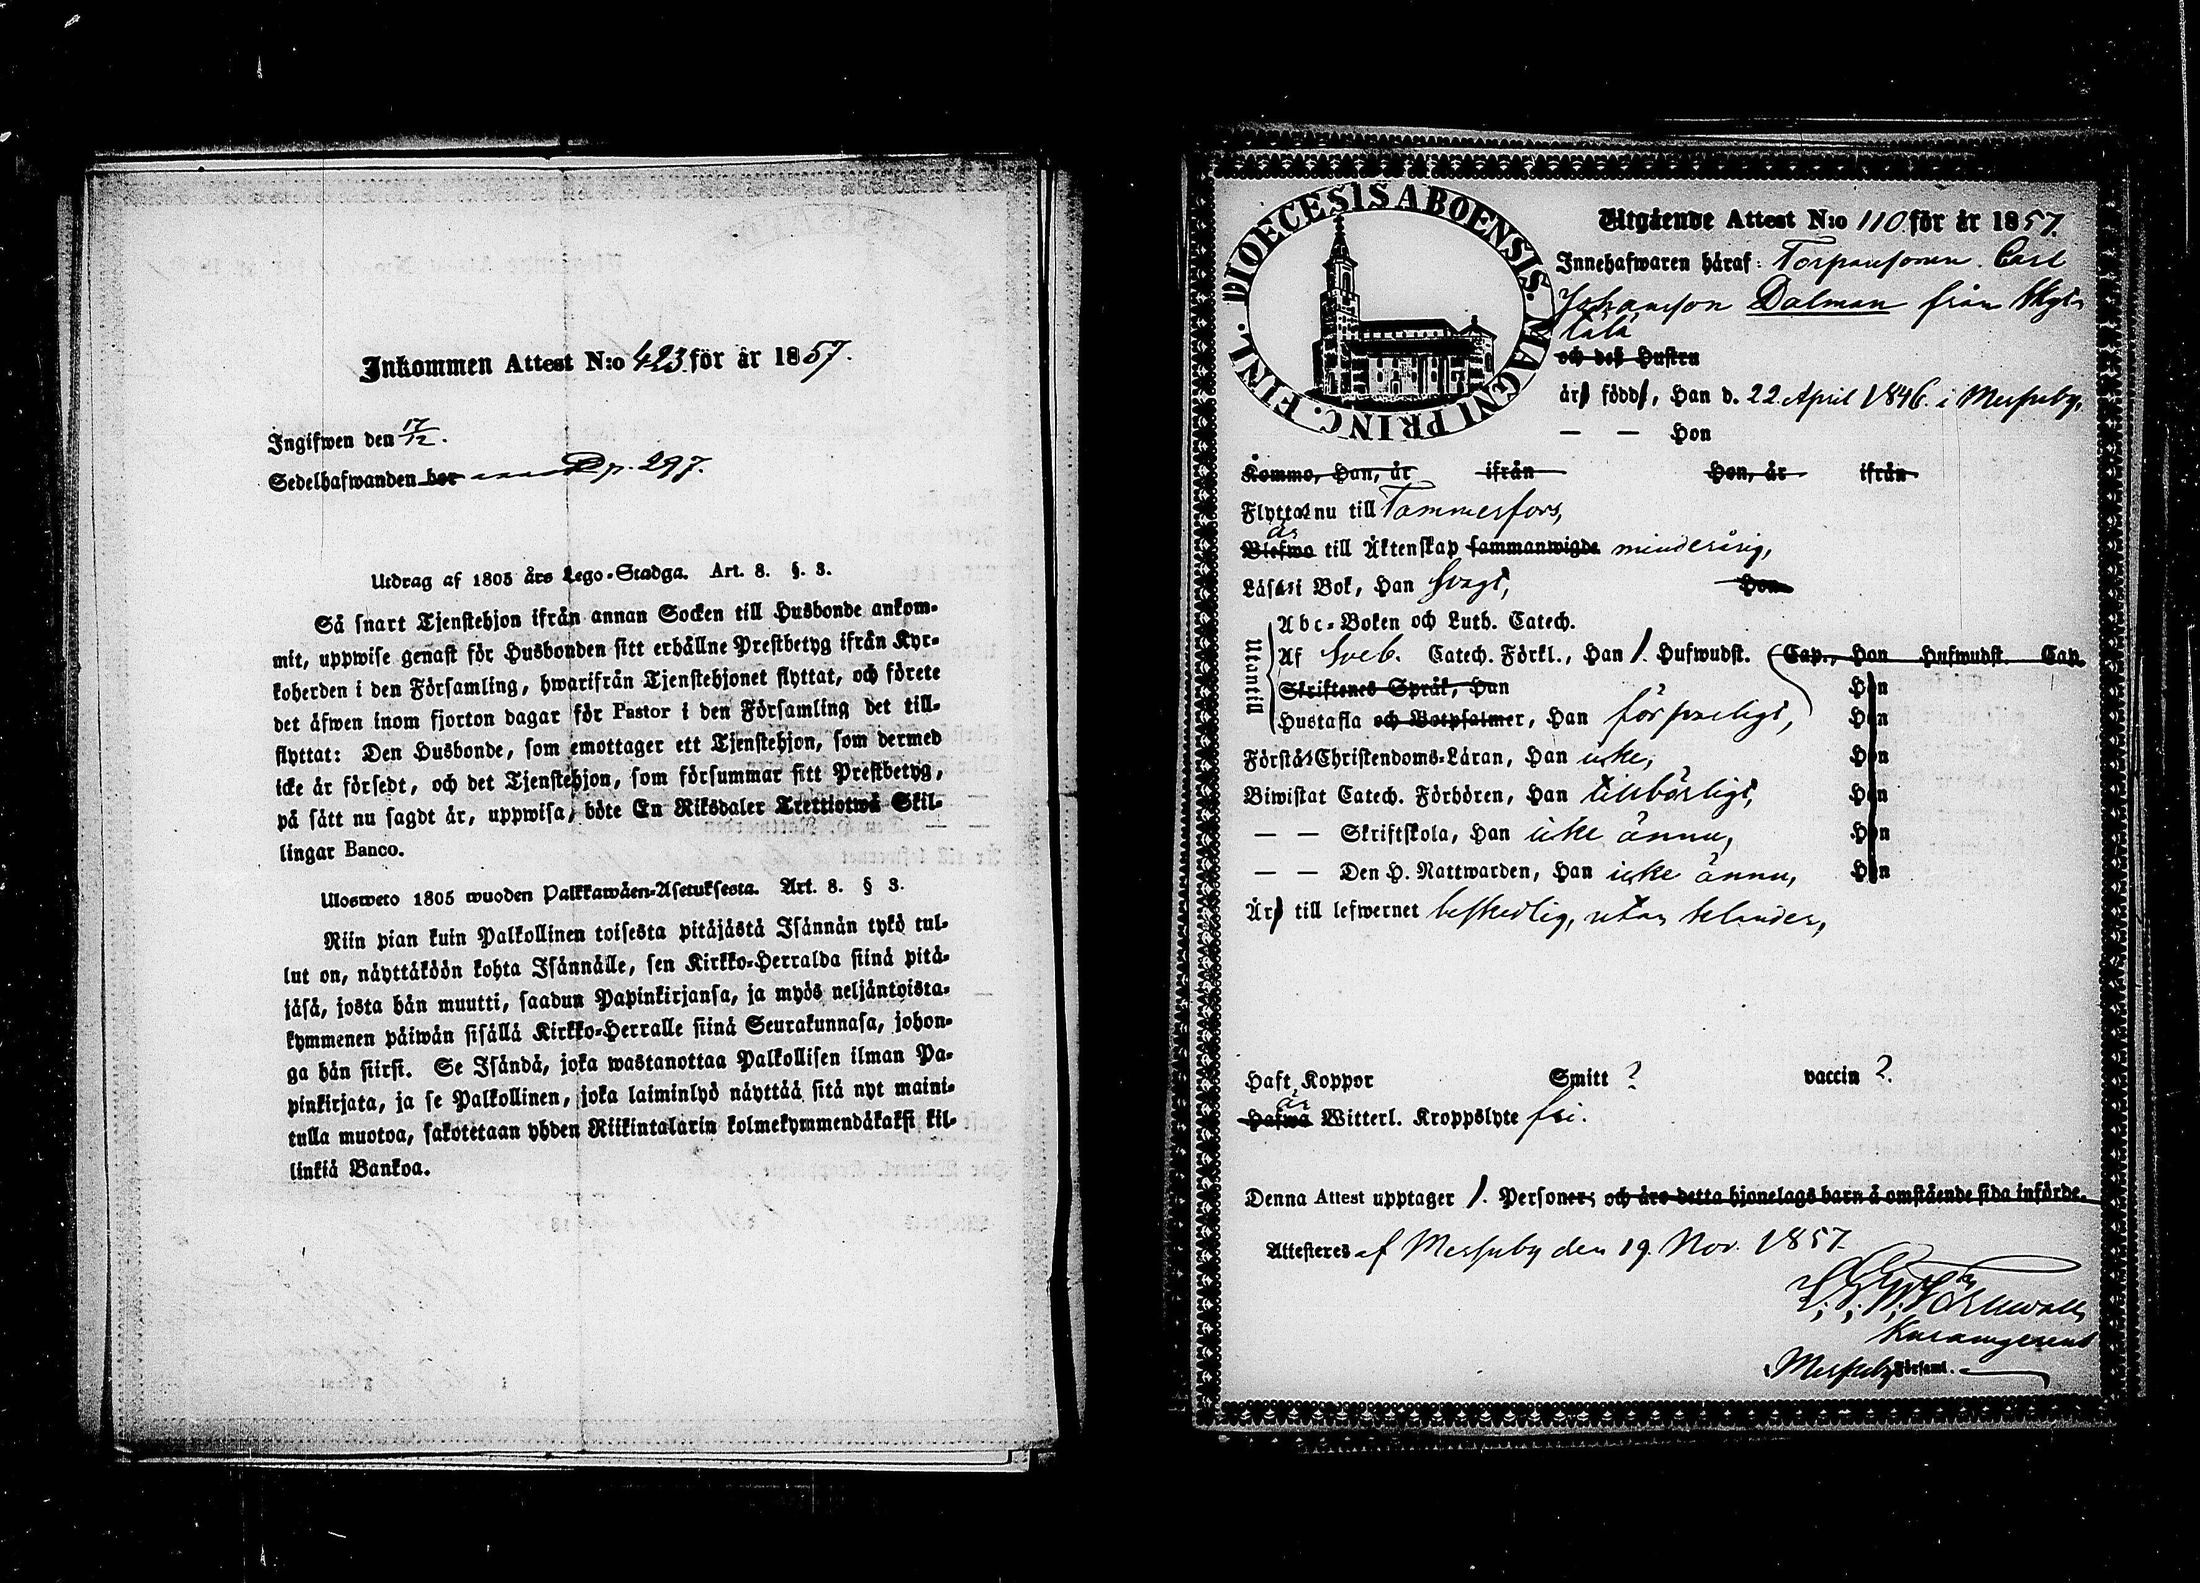 Inkommen Attest N:o 423 för år 1857.
Ingifwen den 17/12.
Sedelhafwanden bor p. 297.
Utdrag af 1805 års Lego-Stadga. Art. 8. §. 3.
Så snart Tjenstehjon ifrån annan Socken till Husbonde ankom-
mit, uppwise genast för Husbonden sitt erhållne Prestbetyg ifrån Kyr-
koherden i den Församling, hwarifrån Tjenstehjonet flyttat, och förete
det äfwen inom fjorton dagar för Pastor i den Församling det till-
flyttat: Den Husbonde, som emottager ett Tjenstehjon, som dermed
icke är försedt, och det Tjenstehjon, som försummar sitt Prestbetyg,
på sätt nu sagdt är, uppwisa, böte En Riksdaler Trettiotwå Skil-
lingar Banco.
Ulosweto 1805 wuoden Palkkawäen-Asetuksesta. Art. 8. § 3.
Niin pian kuin Palkollinen toisesta pitäjästä Isännän tykö tul-
lut on, näyttäköön kohta Isännälle, sen Kirkko-Herralda siinä pitä-
jäsä, josta hän muutti, saadun Papinkirjansa, ja myös neljäntoista-
kymmenen päiwän sisällä Kirkko-Herralle siinä Seurakunnasa, johon-
ga hän siirsi. Se Isändä, joka wastanottaa Palkollisen ilman Pa-
pinkirjata, ja se Palkollinen, joka laiminlyö näyttää sitä nyt maini-
tulla muotoa, sakotetaan yhden Riikintalarin kolmekymmendäkaksi kil-
linkiä Bankoa.
DIOECESIS ABOENSIS. MAGNI PRINC. FINL.
Utgående Attest N:o 110 för år 1857.
Innehafwaren häraf: Torparsonen Carl
Johansson Dalman från
och deß Hustru
är född, Han d. 22 April 1846 i Messuby,
— — Hon
Komma, Han, år ifrån Hon, år ifrån
Flyttar nu till Tammerfors,
är
Blefwo till Äktenskap sammanwigde minderårig,
Läser i Bok, Han svagt, Hon
Utantill
Abc-Boken och Luth. Catech.
Af Sveb. Catech. Förkl., Han 1. Hufwudst. Cap., Han Hufwudst. Cap.
Skriftenes Språk, Han Hon
Hustafla och Botpsalmer, Han försvarligt, Hon
Förstår Christendoms-Läran, Han icke, Hon
Biwistat Catech. Förhören, Han tillbörligt, Hon
— — Skriftskola, Han icke ännu, Hon
— — Den H. Nattwarden, Han icke ännu, Hon
Är till lefwernet beskedlig, utan klander,
Haft Koppor Smitt ? vaccin ?.
är
Hafwa Witterl. Kroppslyte fri.
Denna Attest upptager 1. Personer; och äro detta hjonelags barn å omstående sida införde.
Attesteres af Messuby den 19. Nov. 1857.
Messuby Församl.